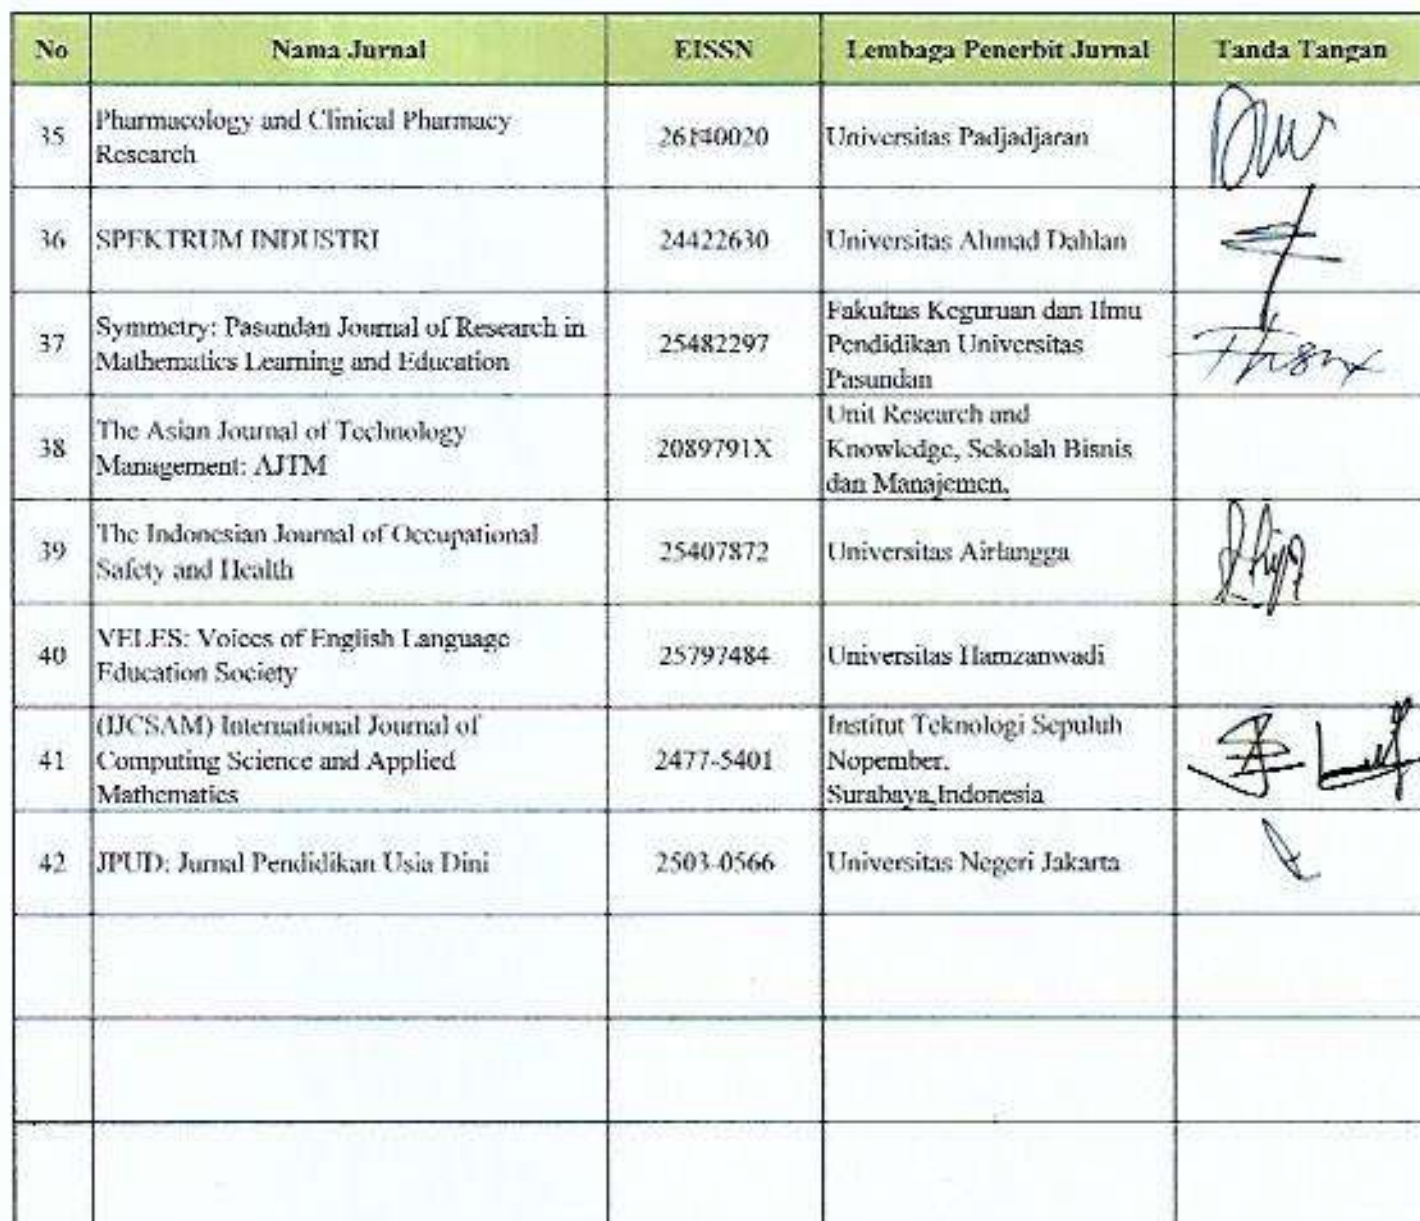 No Nama Jurnal EISSN Lembaga Penerbit Jurnal Tanda Tangan
35 Pharmacology and Clinical Pharmacy
Research 26140020 Universitas Padjadjaran
36 SPEKTRUM INDUSTRI 24422630 Universitas Ahmad Dahlan
37 Symmetry: Pasundan Journal of Research in
Mathematics Learning and Education 25482297 Fakultas Keguruan dan Ilmu
Pendidikan Universitas
Pasundan
38 The Asian Journal of Technology
Management: AJTM 2089791X Unit Research and
Knowledge, Sekolah Bisnis
dan Manajemen,
39 The Indonesian Journal of Occupational
Safety and Health 25407872 Universitas Airlangga
40 VELES: Voices of English Language
Education Society 25797484 Universitas Hamzanwadi
41 (IJCSAM) International Journal of
Computing Science and Applied
Mathematics 2477-5401 Institut Teknologi Sepuluh
Nopember,
Surabaya,Indonesia
42 JPUD: Jurnal Pendidikan Usia Dini 2503-0566 Universitas Negeri Jakarta